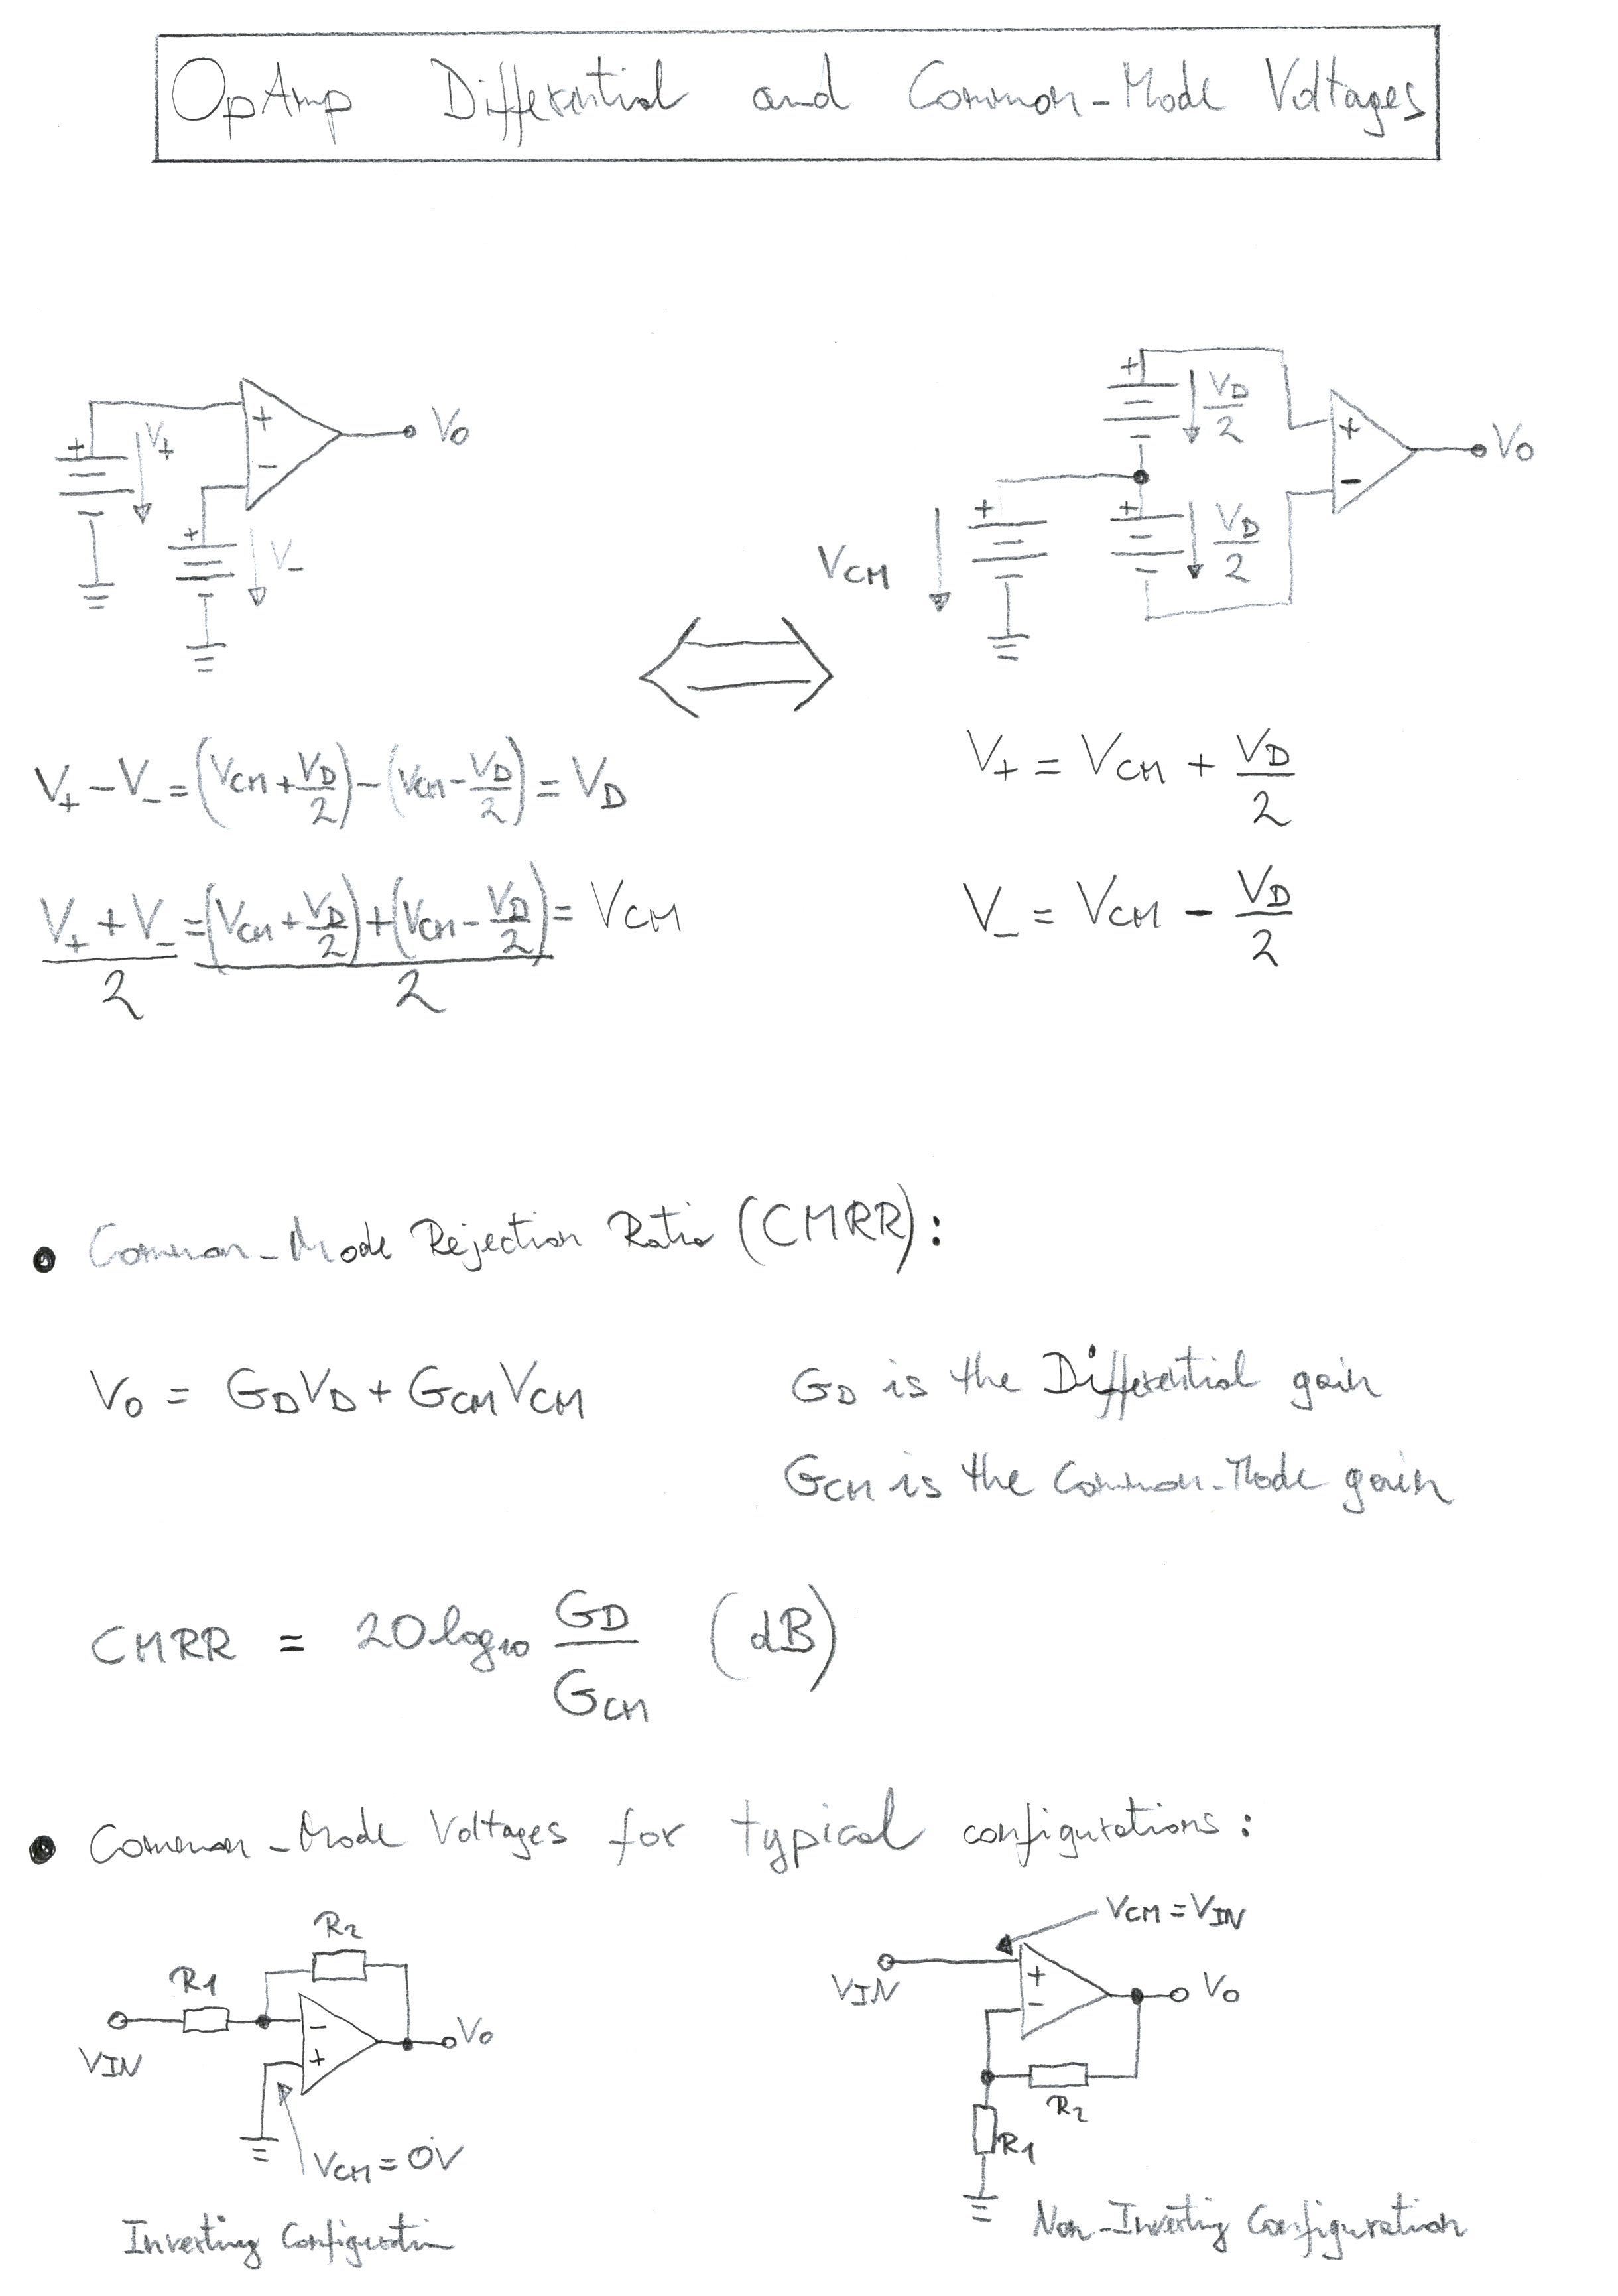 OpAmp Differential and Common-Mode Voltages
+ V+ + - Vo
+ V-
+ VD/2 + - Vo
VCM + + VD/2
V+ - V- = (VCM + VD/2) - (VCM - VD/2) = VD
V+ = VCM + VD/2
(V+ + V-)/2 = ((VCM + VD/2) + (VCM - VD/2))/2 = VCM
V- = VCM - VD/2
• Common-Mode Rejection Ratio (CMRR):
Vo = GDVD + GCMVCM
GD is the Differential gain
GCM is the Common-Mode gain
CMRR = 20log10 GD/GCM (dB)
• Common-Mode Voltages for typical configurations:
R2
R1
VIN
- +
Vo
VCM = 0V
Inverting Configuration
VCM = VIN
VIN
+ -
Vo
R2
R1
Non-Inverting Configuration